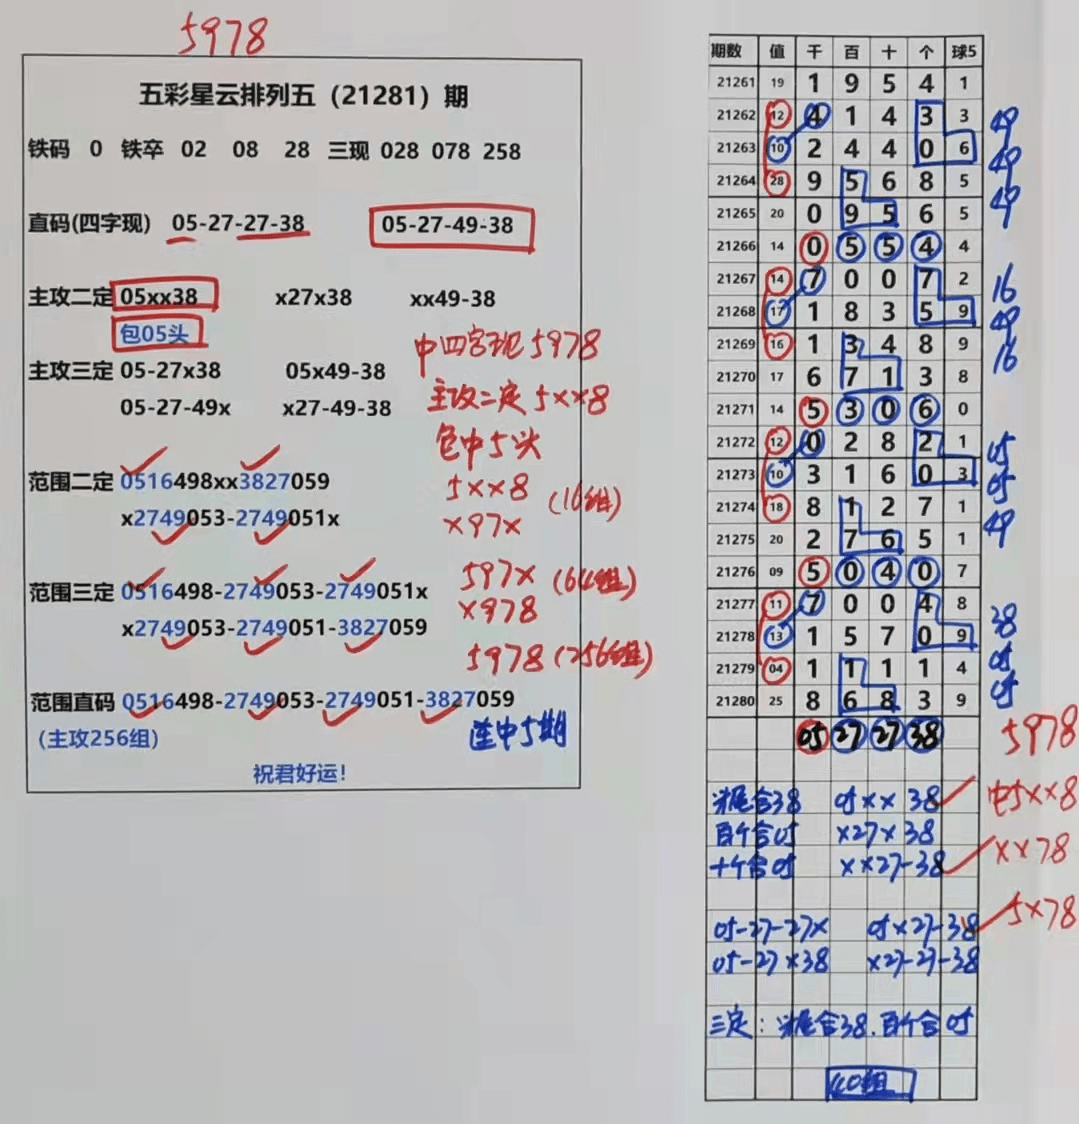 5978
五彩星云排列五（21281）期
铁码 0 铁卒 02 08 28 三现 028 078 258
直码(四字现) 05-27-27-38 05-27-49-38
主攻二定 05xx38 x27x38 xx49-38
包05头
中四字现5978
主攻三定 05-27x38 05x49-38
主攻二定5xx8
05-27-49x x27-49-38
包中5头
范围二定 0516498xx3827059
5xx8 (16组)
x2749053-2749051x
x97x
范围三定 0516498-2749053-2749051x
597x (64组)
x2749053-2749051-3827059
x978
5978(256组)
范围直码 0516498-2749053-2749051-3827059
(主攻256组)
连中5期
祝君好运!
期数 值 千 百 十 个 球5
21261 19 1 9 5 4 1
21262 12 4 1 4 3 3 49
21263 10 2 4 4 0 6 49
21264 28 9 5 6 8 5 49
21265 20 0 9 5 6 5
21266 14 0 5 5 4 4
21267 14 7 0 0 7 2 16
21268 17 1 8 3 5 9 49
21269 16 1 3 4 8 9 16
21270 17 6 7 1 3 8
21271 14 5 3 0 6 0
21272 12 0 2 8 2 1 05
21273 10 3 1 6 0 3 05
21274 18 8 1 2 7 1 49
21275 20 2 7 6 5 1
21276 09 5 0 4 0 7
21277 11 7 0 0 4 8 38
21278 13 1 5 7 0 9 05
21279 04 1 1 1 1 4 05
21280 25 8 6 8 3 9
05 27 27 38 5978
尾合38 05xx38 中5xx8
百个合05 x27x38
十个合05 xx27-38 xx78
05-27-27x 05x27-38 5x78
05-27x38 x27-27-38
三定: 尾合38.百个合05
40组